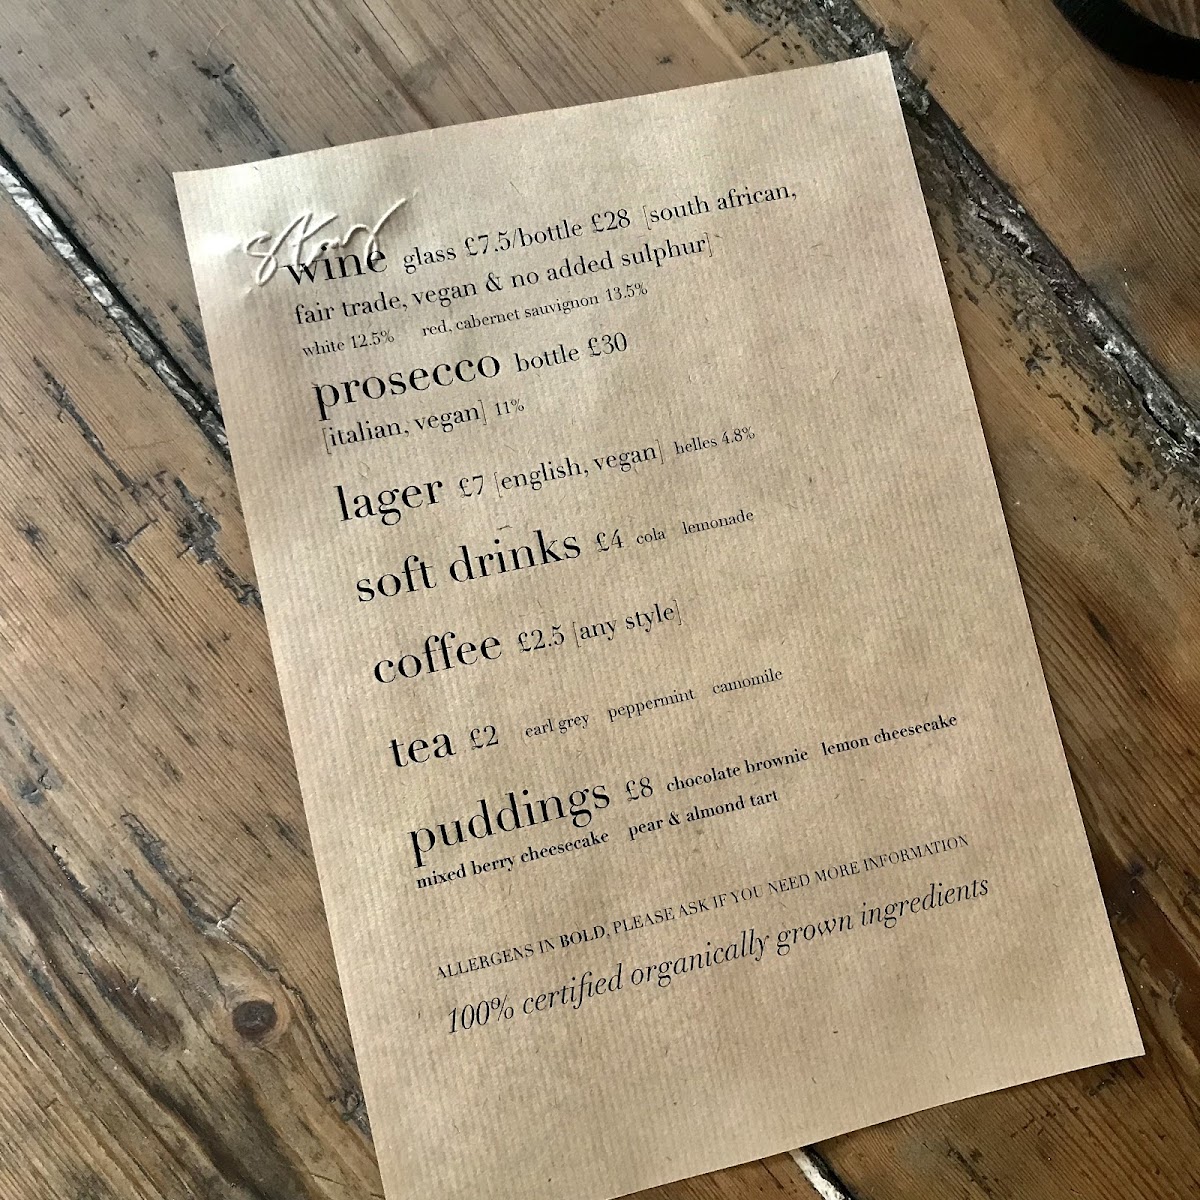 stay
wine glass £7.5/bottle £28 [south african,
fair trade, vegan & no added sulphur]
white 12.5% red, cabernet sauvignon 13.5%
prosecco bottle £30
[italian, vegan] 11%
lager £7 [english, vegan] helles 4.8%
soft drinks £4 cola lemonade
coffee £2.5 [any style]
tea £2 earl grey peppermint camomile
puddings £8 chocolate brownie lemon cheesecake
mixed berry cheesecake pear & almond tart
ALLERGENS IN BOLD, PLEASE ASK IF YOU NEED MORE INFORMATION
100% certified organically grown ingredients